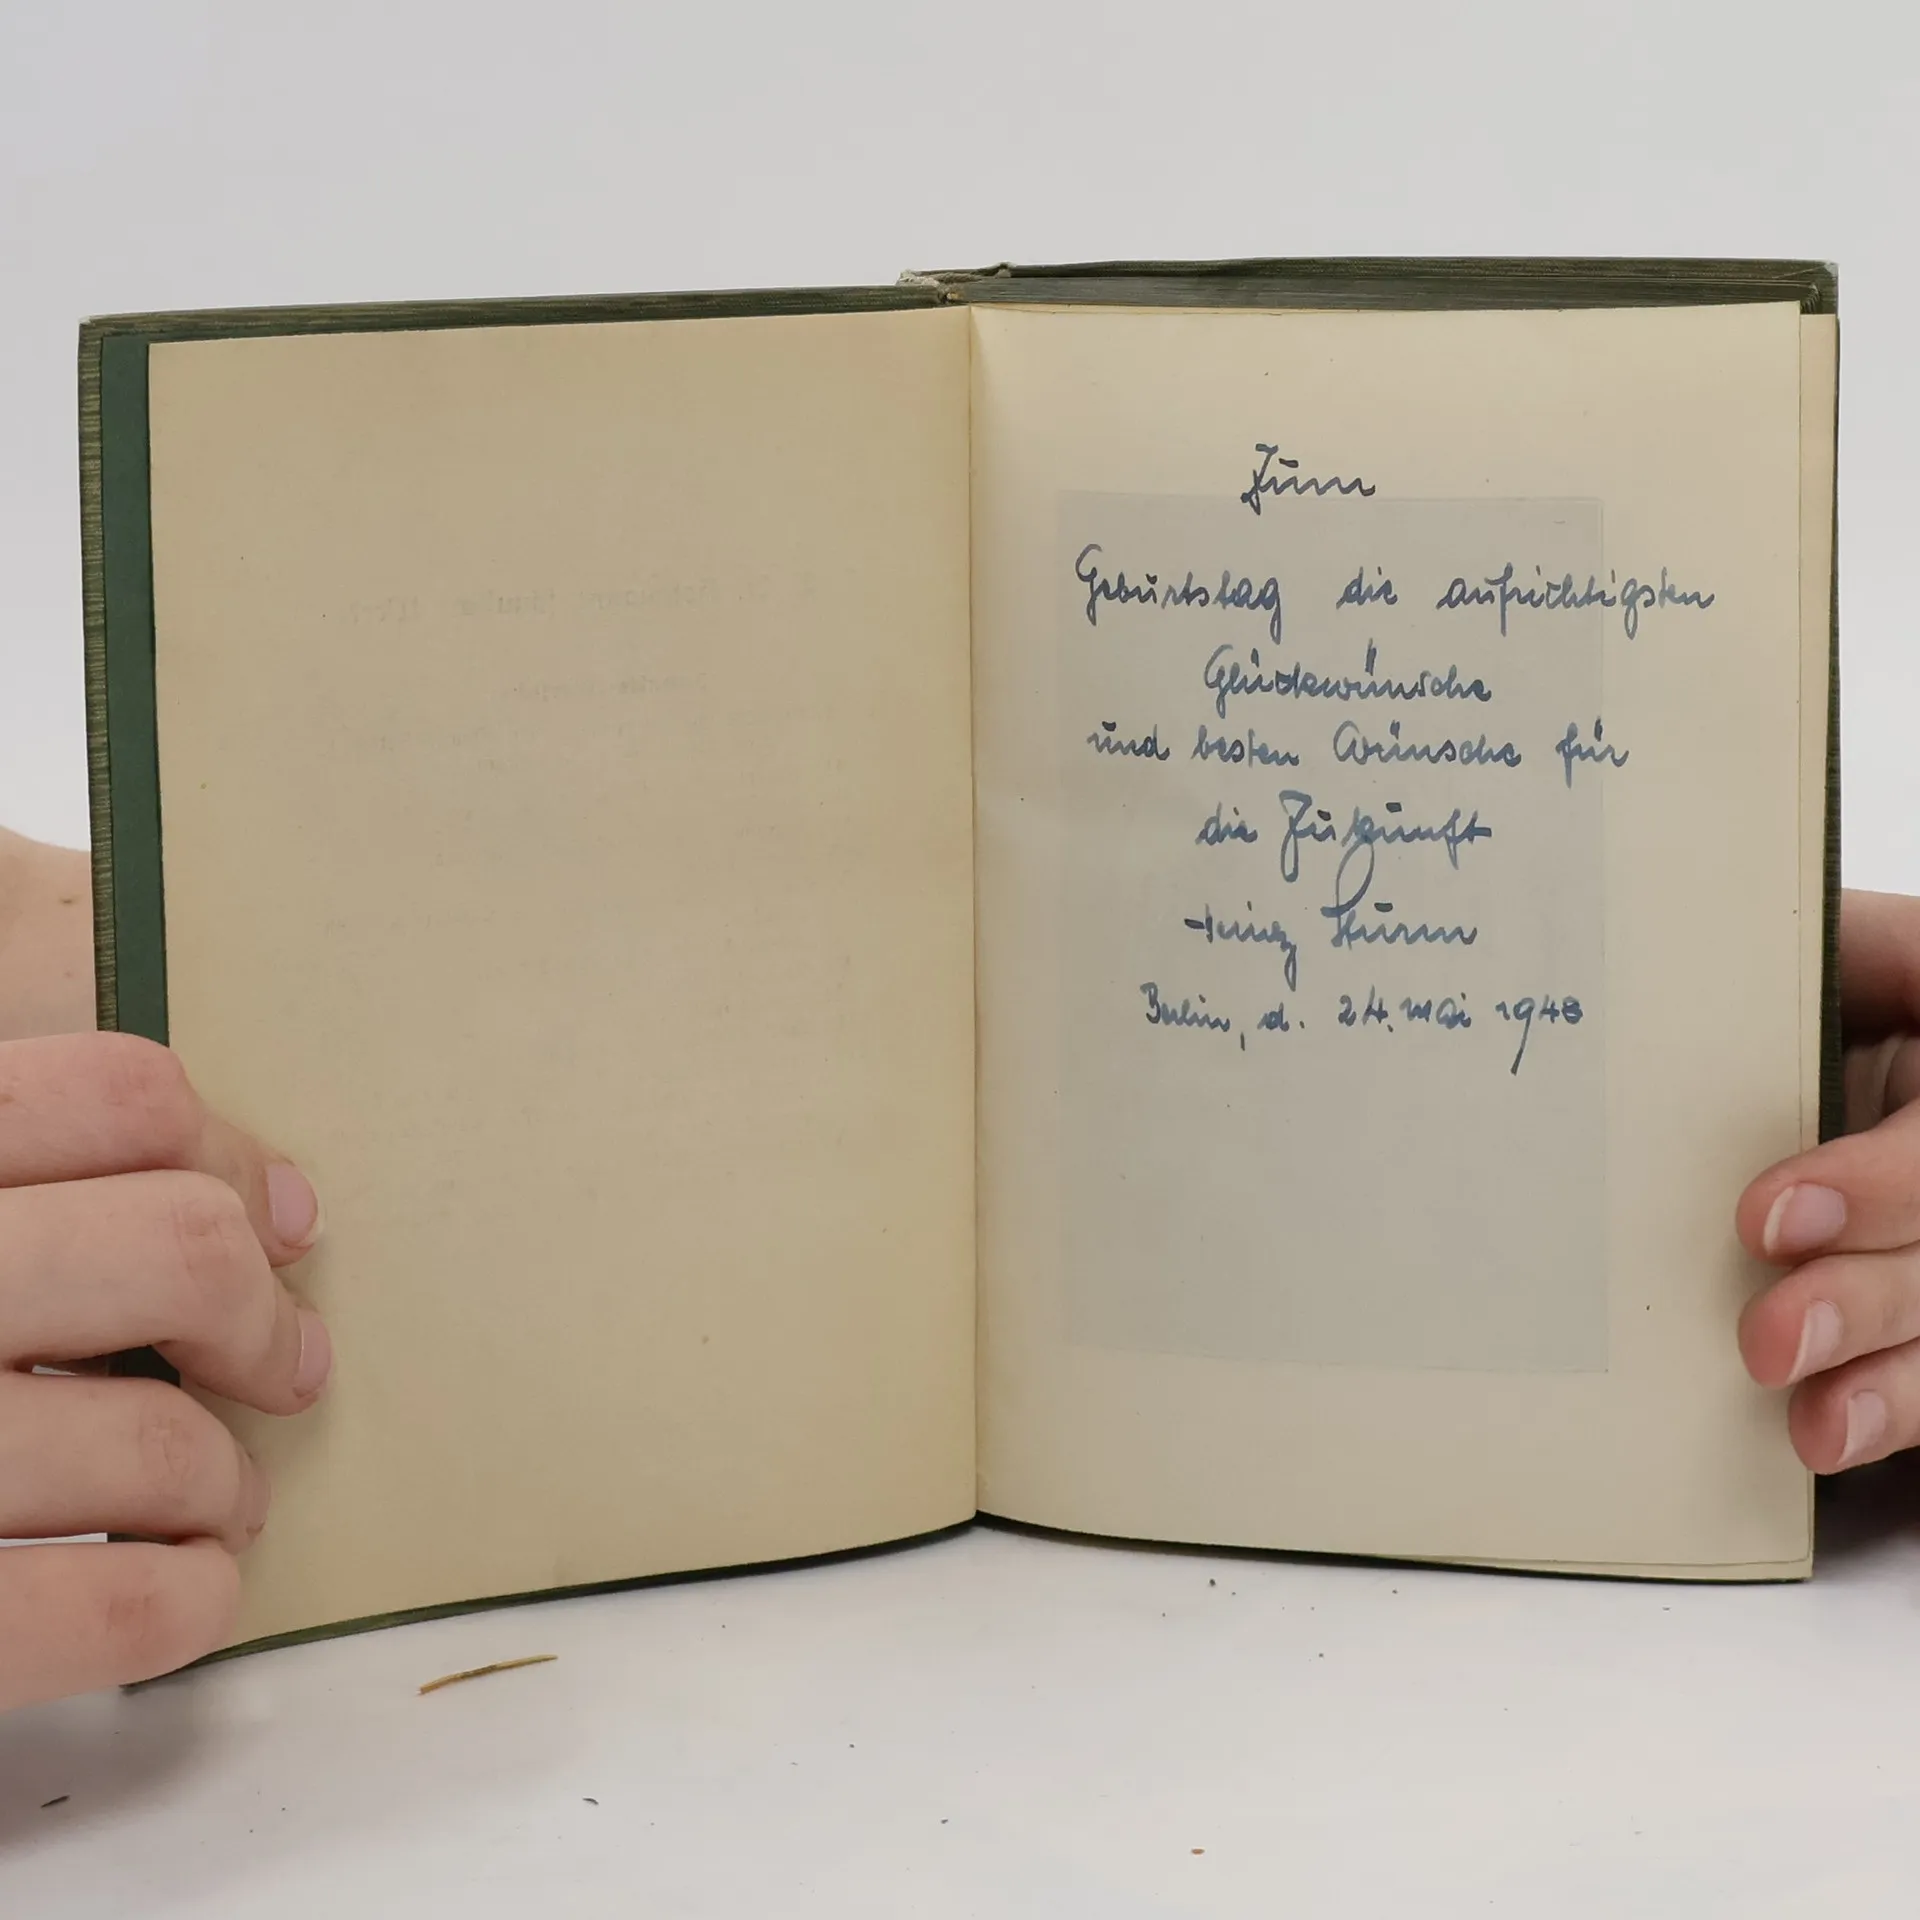 Zum
Geburtstag die aufrichtigsten
Glückwünsche
und besten Wünsche für
die Zukunft
Heinz Sturm
Berlin, d. 24. Mai 1948